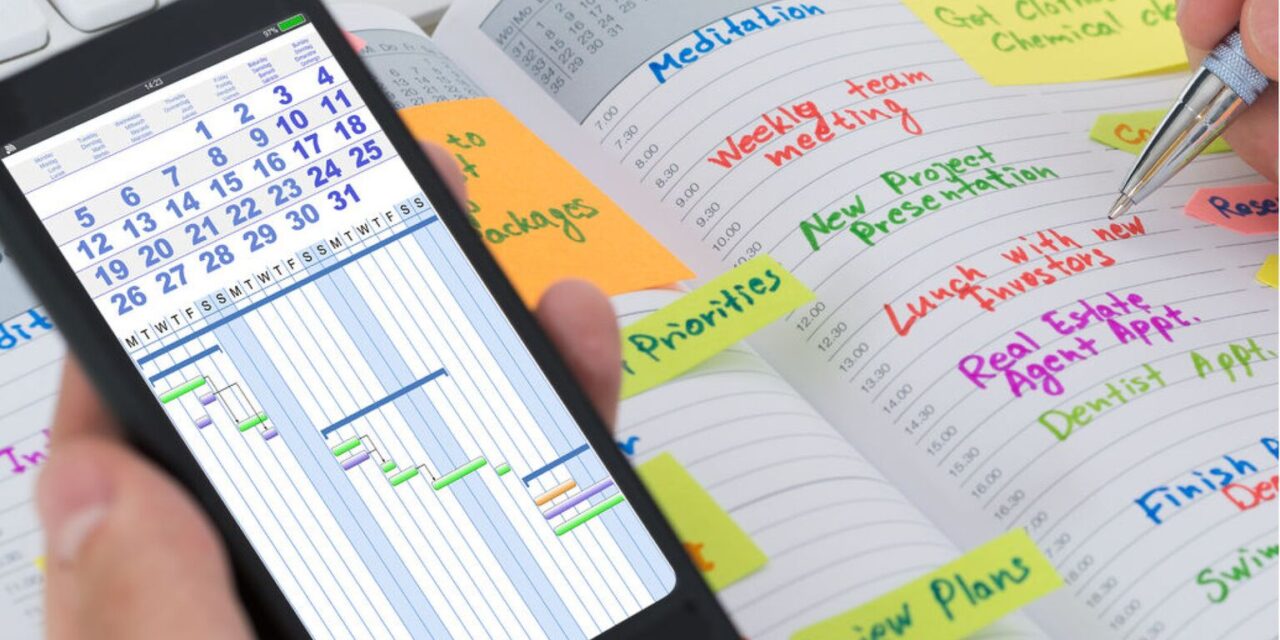 97%
14:23
Monday Tuesday Wednesday Thursday Friday Saturday Sunday
Montag Dienstag Mittwoch Donnerstag Freitag Samstag Sonntag
Lundi Mardi Mercredi Jeudi Vendredi Samedi Dimanche
1 2 3 4
5 6 7 8 9 10 11
12 13 14 15 16 17 18
19 20 21 22 23 24 25
26 27 28 29 30 31
M T W T F S S M T W T F S S M T W T F S S
to
ackages
Priorities
Meditation
Weekly team
meeting
New Project
Presentation
Lunch with new
Investors
Real Estate
Agent Appt.
Dentist Appt.
Finish
Swim
7.00
7.30
8.00
8.30
9.00
9.30
10.00
10.30
12.00
12.30
13.00
13.30
14.00
14.30
15.00
15.30
16.00
16.30
7.00
7.30
18.00
19.00
Got Cloth
Chemical cle
Rese
iew Plans